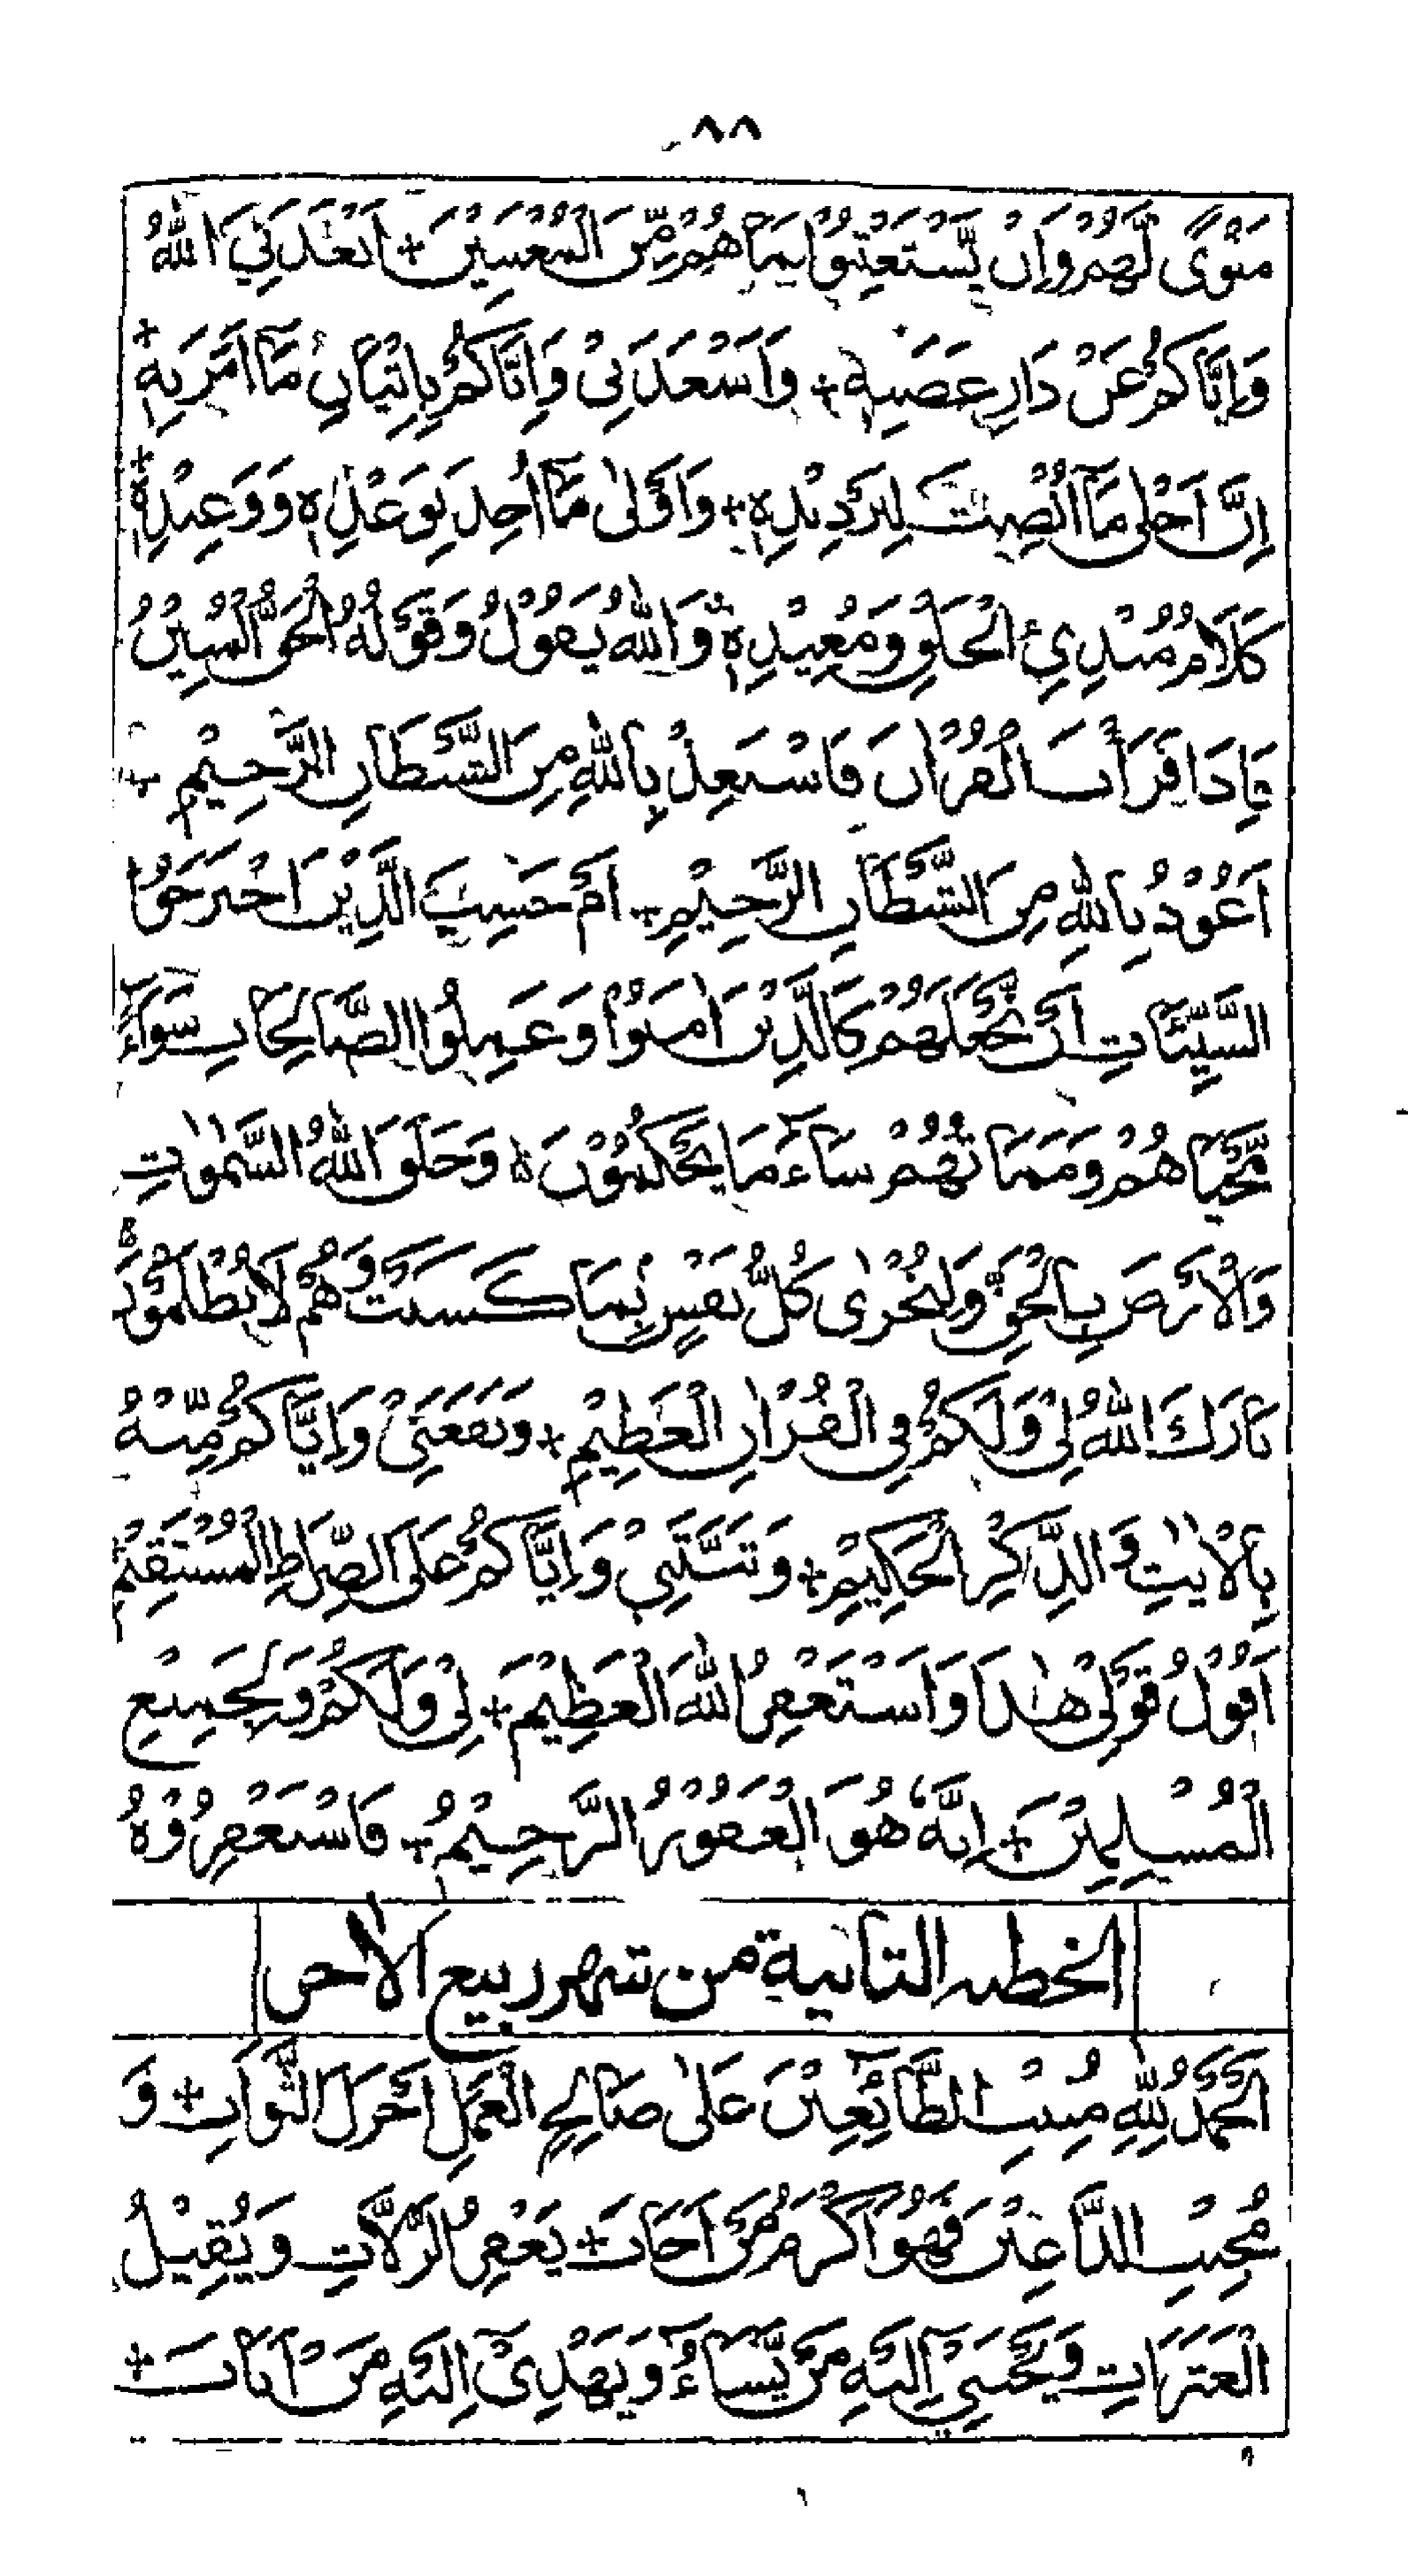 ٨٨
مَثْوًى لَّهُمْ وَإِنْ يَّسْتَعْتِبُوْا فَمَا هُمْ مِّنَ الْمُعْتَبِيْنَ + اَبْعَدَنِيَ اللّٰهُ
وَاِيَّاكُمْ عَنْ دَارِ غَضَبِهٖ + وَاَسْعَدَنِيْ وَاِيَّاكُمْ بِاِتْيَانِ مَا اَمَرَ بِهٖ +
اِنَّ اَحْلٰى مَا اُنْصِتَ لِتَرْدِيْدِهٖ + وَاَوْلٰى مَا اُخِذَ بِوَعْدِهٖ وَوَعِيْدِهٖ +
كَلَامُ مُبْدِئِ الْخَلْقِ وَمُعِيْدِهٖ وَاللّٰهُ يَقُوْلُ وَقَوْلُهُ الْحَقُّ الْمُبِيْنُ
فَاِذَا قَرَأْتَ الْقُرْاٰنَ فَاسْتَعِذْ بِاللّٰهِ مِنَ الشَّيْطَانِ الرَّجِيْمِ +
اَعُوْذُ بِاللّٰهِ مِنَ الشَّيْطَانِ الرَّجِيْمِ + اَمْ حَسِبَ الَّذِيْنَ اجْتَرَحُوا
السَّيِّئَاتِ اَنْ نَّجْعَلَهُمْ كَالَّذِيْنَ اٰمَنُوْا وَعَمِلُوا الصَّالِحَاتِ سَوَآءً
مَّحْيَاهُمْ وَمَمَاتُهُمْ سَآءَ مَا يَحْكُمُوْنَ ه وَخَلَقَ اللّٰهُ السَّمٰوٰتِ
وَالْاَرْضَ بِالْحَقِّ وَلِتُجْزٰى كُلُّ نَفْسٍ بِمَا كَسَبَتْ وَهُمْ لَا يُظْلَمُوْنَ
بَارَكَ اللّٰهُ لِيْ وَلَكُمْ فِي الْقُرْاٰنِ الْعَظِيْمِ + وَنَفَعَنِيْ وَاِيَّاكُمْ مِّنْهُ
بِالْاٰيٰتِ وَالذِّكْرِ الْحَكِيْمِ + وَثَبَّتَنِيْ وَاِيَّاكُمْ عَلَى الصِّرَاطِ الْمُسْتَقِيْمِ
اَقُوْلُ قَوْلِيْ هٰذَا وَاَسْتَغْفِرُ اللّٰهَ الْعَظِيْمَ + لِيْ وَلَكُمْ وَلِجَمِيْعِ
الْمُسْلِمِيْنَ + اِنَّهٗ هُوَ الْغَفُوْرُ الرَّحِيْمُ + فَاسْتَغْفِرُوْهُ
الخطبة الثانية من شهر ربيع الاٰخر
اَلْحَمْدُ لِلّٰهِ مُثِيْبِ الطَّائِعِيْنَ عَلٰى صَالِحِ الْعَمَلِ اَجْزَلَ الثَّوَابِ + وَ
مُجِيْبِ الدَّاعِيْنَ فَهُوَ اَكْرَمُ مَنْ اَجَابَ + يَغْفِرُ الزَّلَّاتِ وَيُقِيْلُ
الْعَثَرَاتِ وَيَجْتَبِيْ اِلَيْهِ مَنْ يَّشَآءُ وَيَهْدِيْ اِلَيْهِ مَنْ اَنَابَ +